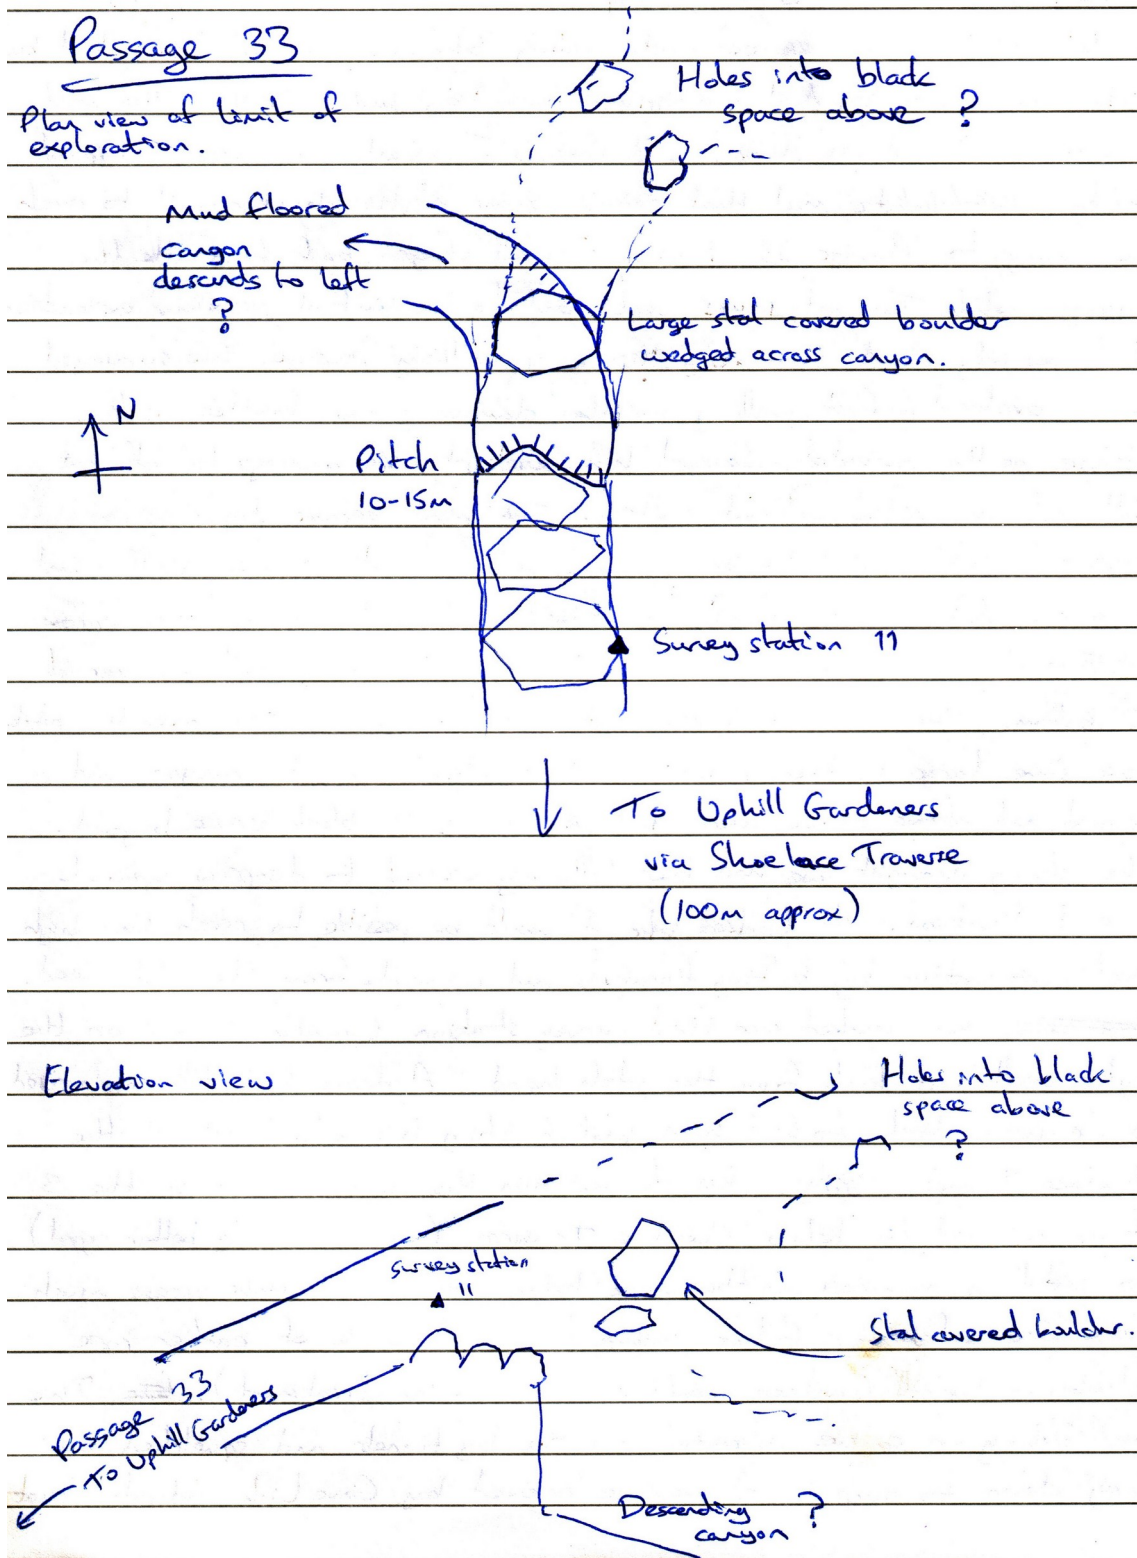 Passage 33
Plan view of limit of
exploration.
Holes into black
space above ?
Mud floored
canyon
descends to left
?
Large stal covered boulder
wedged across canyon.
N
Pitch
10-15m
Survey station 11
To Uphill Gardeners
via Shoelace Traverse
(100m approx)
Elevation view
Holes into black
space above
?
Survey station
11
Stal covered boulder.
Passage 33
To Uphill Gardeners
Descending ?
canyon